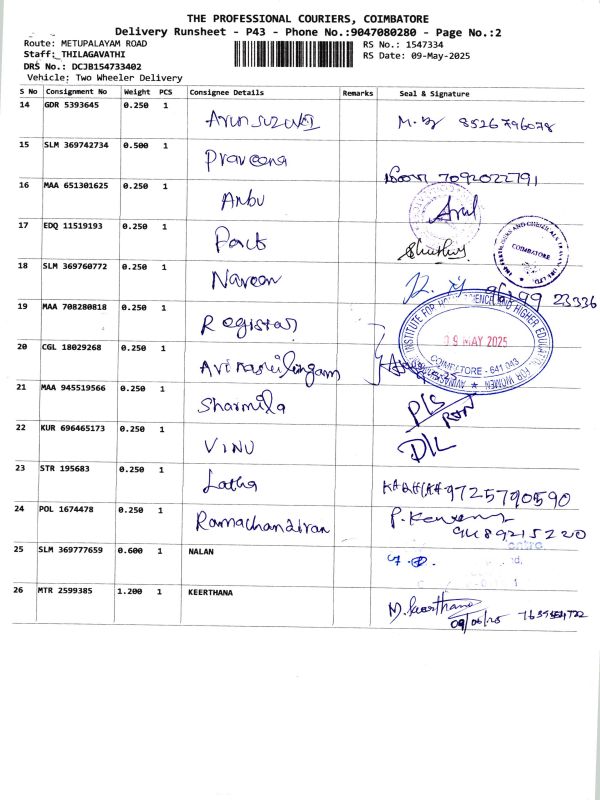 THE PROFESSIONAL COURIERS, COIMBATORE
Delivery Runsheet - P43 - Phone No.:9047080280 - Page No.:2
Route: METUPALAYAM ROAD
RS No.: 1547334
Staff: THILAGAVATHI
RS Date: 09-May-2025
DRS No.: DCJB154733402
Vehicle: Two Wheeler Delivery
S No Consignment No Weight PCS Consignee Details Remarks Seal & Signature
14 GDR 5393645 0.250 1 Arunsuzuki 8526796078
15 SLM 369742734 0.500 1 Praveena 7092022791
16 MAA 651301625 0.250 1 Anbu
17 EDQ 11519193 0.250 1 Pact
COIMBATORE
18 SLM 369760772 0.250 1 Naveen 23336
19 MAA 708280818 0.250 1 Registrar
INSTITUTE FOR HOME SCIENCE AND HIGHER EDUCATION FOR WOMEN
09 MAY 2025
COIMBATORE - 641 043
20 CGL 18029268 0.250 1 Avinashilingam
21 MAA 945519566 0.250 1 Sharmila
22 KUR 696465173 0.250 1 VINU
23 STR 195683 0.250 1 Latha 9725790590
24 POL 1674478 0.250 1 Ramachandiran 9489215220
25 SLM 369777659 0.600 1 NALAN
26 MTR 2599385 1.200 1 KEERTHANA M. Keerthana